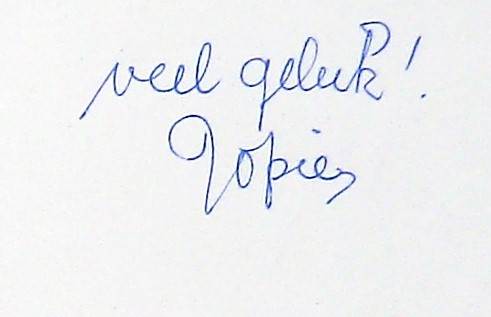 veel geluk!
Jopie